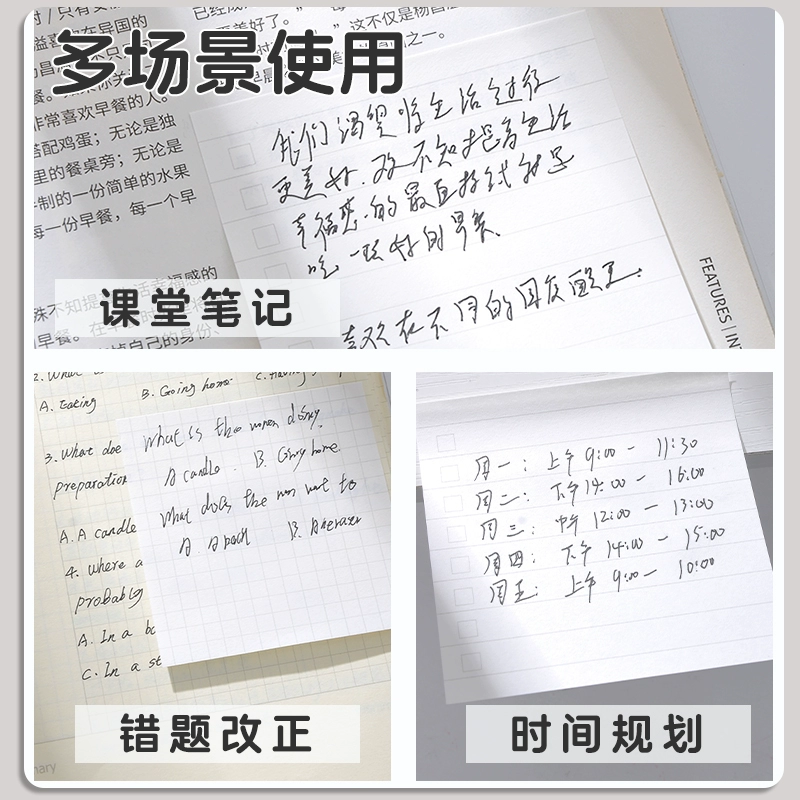 多场景使用
益喜欢在异国的
非常喜欢早餐的人。
搭配鸡蛋；无论是独
里的餐桌旁；无论是
制的一份简单的水果
每一份早餐，每一个早
这不仅是杨昌
之一。
我们渴望将生活过得
更美好.殊不知提高生活
幸福感.的最直接方式就是
吃一顿好的早餐.
喜欢在不同的国度醒来.
殊不知提
活幸福感的
早餐。在
掉自己的身份、
FEATURES | IN
课堂笔记
2. What
A. Eating B. Going home C. Having
3. What doe
preparation
A. A candle
4. Where a
probably
A. In a bo
C. In a st
What is the women doing.
A candle. B. Going home.
What does the man want to
A. A book B. A
错题改正
周一：上午 9:00 - 11:30
周二：下午 14:00 - 16:00
周三：中午 12:00 - 13:00
周四：下午 14:00 - 15:00
周五：上午 9:00 - 10:00
时间规划